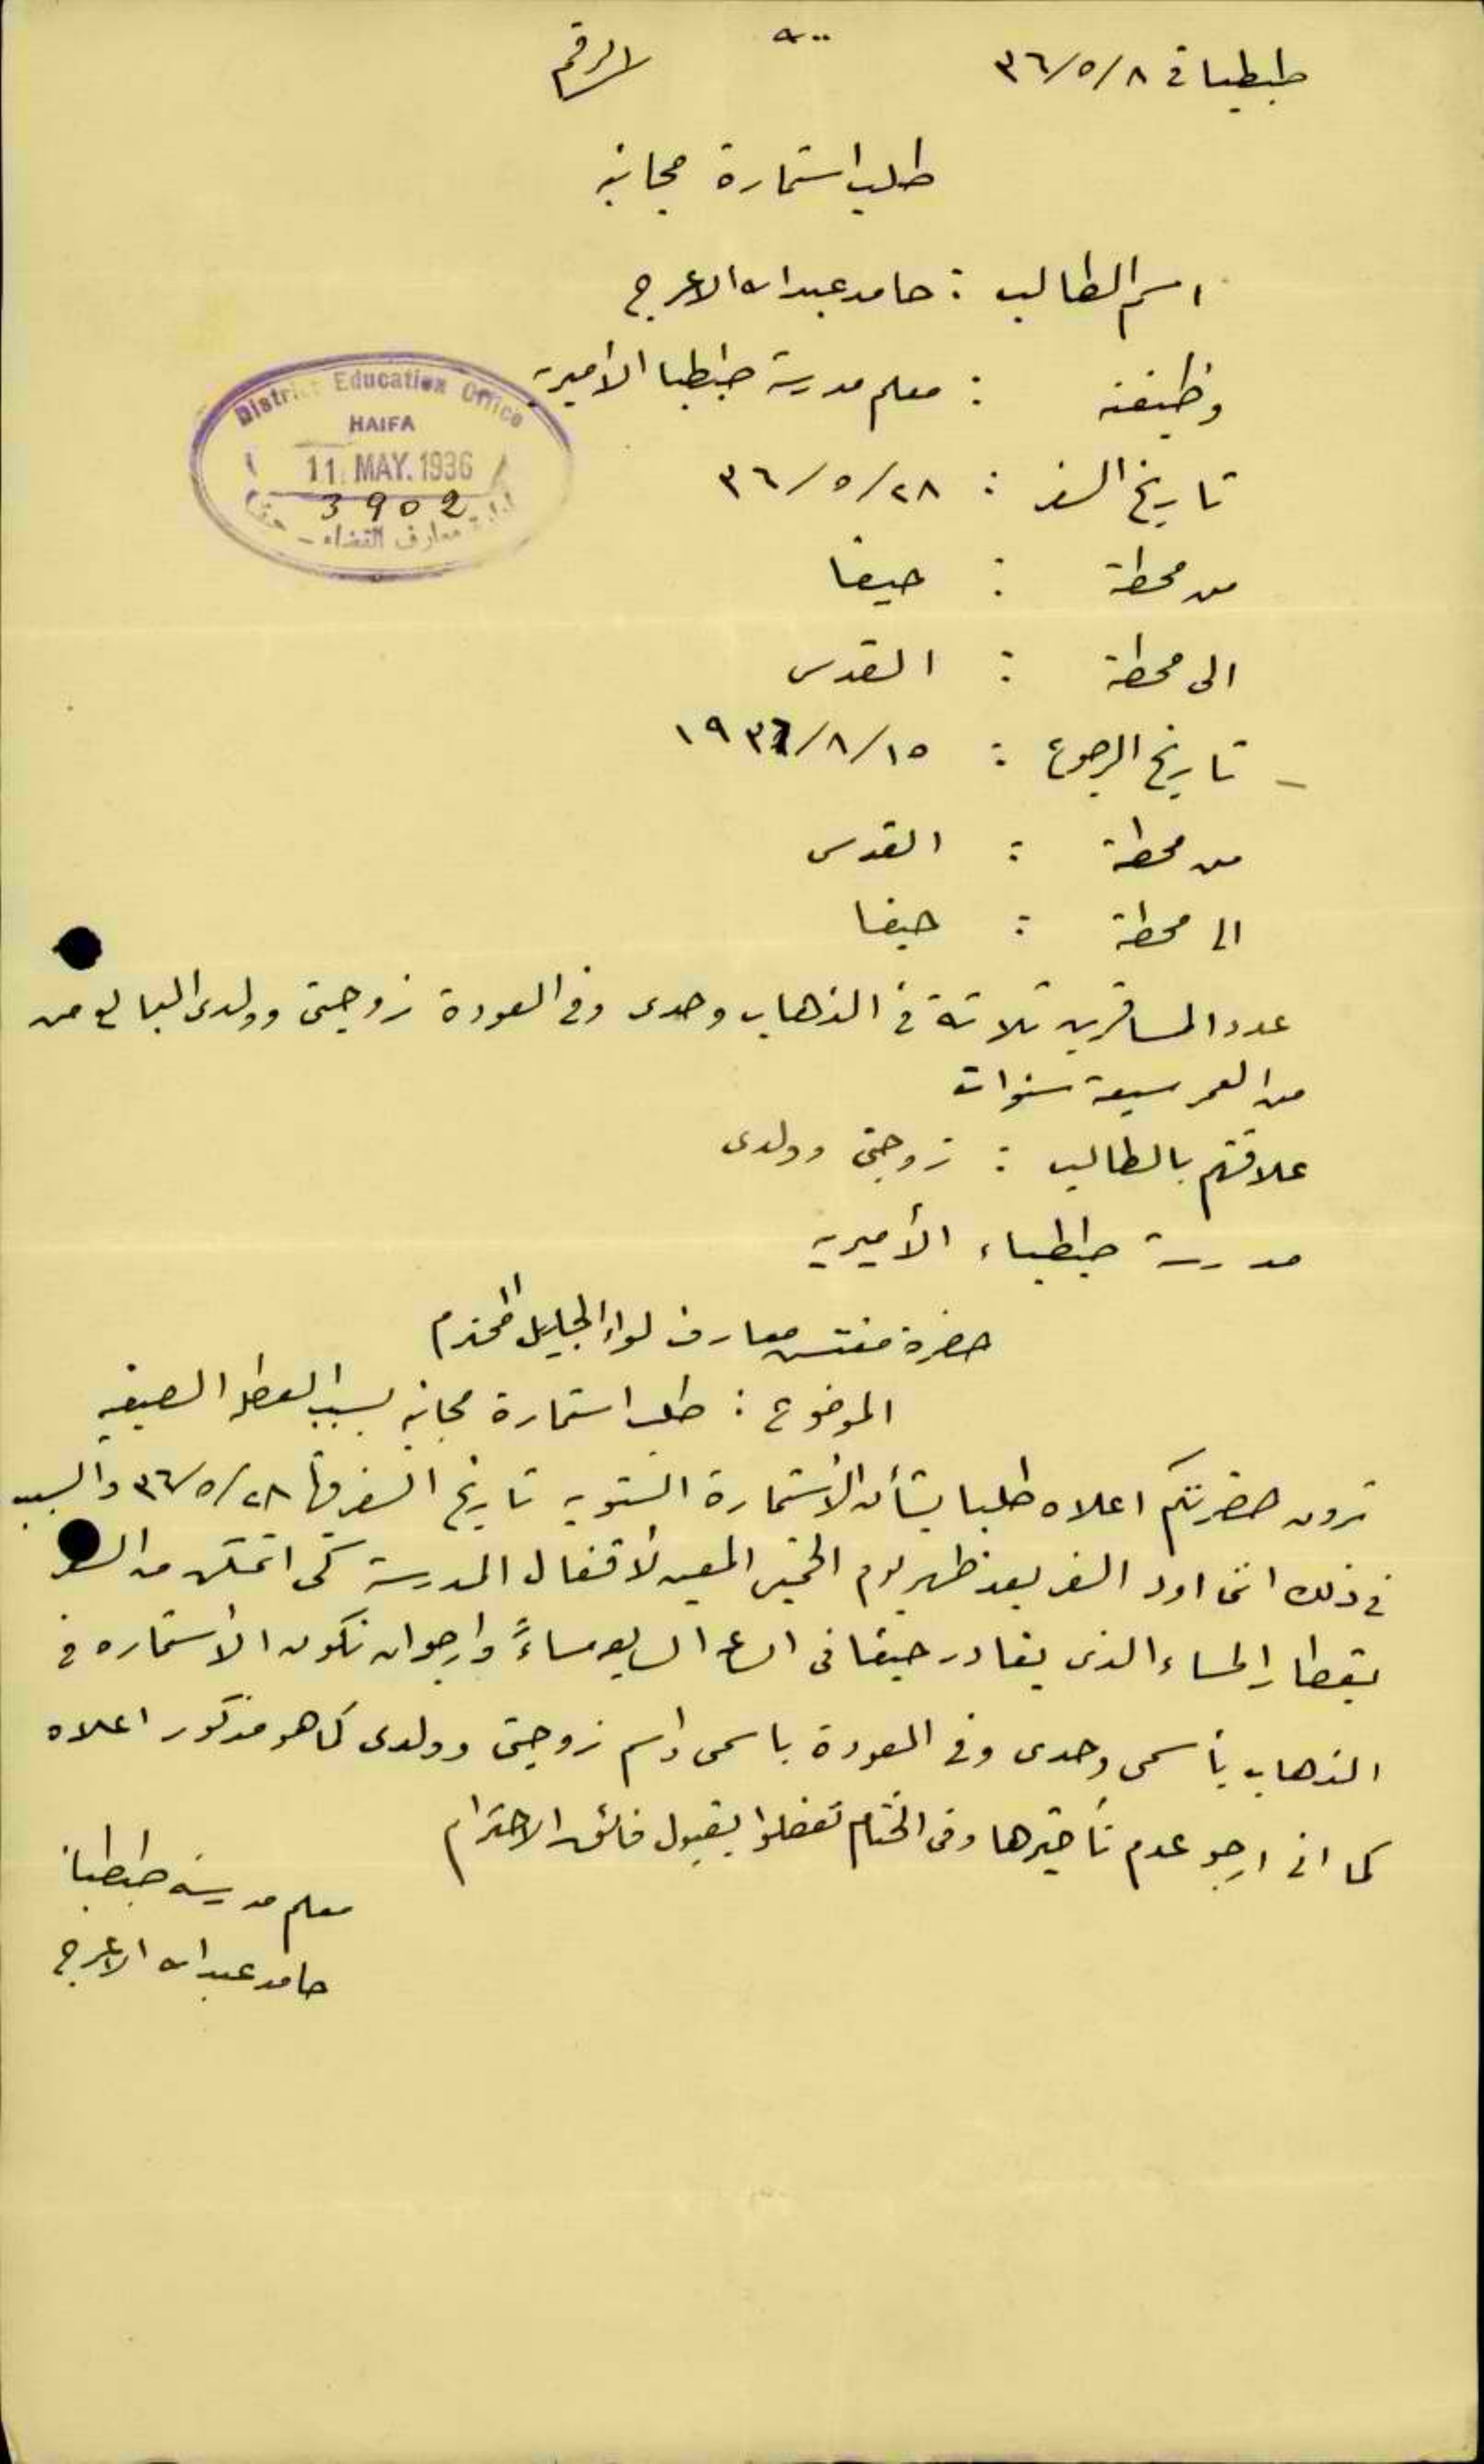 طيطبا في ٣٦/٥/٨
الرقم
طلب استمارة مجانية
اسم الطالب : حامد عبدالله الاعرج
وظيفته : معلم مدرسة طيطبا الأميرية
District Education Office
HAIFA
11 MAY. 1936
3902
ادارة معارف القضاء - حيفا
تاريخ السفر : ٣٦/٥/٢٨
من محطة : حيفا
الى محطة : القدس
تاريخ الرجوع : ١٩٣٦/٨/١٥
من محطة : القدس
الى محطة : حيفا
عدد المسافرين ثلاثة في الذهاب وحدى وفي العودة زوجتى وولدى البالغ من
من العمر سبعة سنوات
علاقتهم بالطالب : زوجتى وولدى
مدرسة طيطباء الأميرية
حضرة مفتش معارف لواء الجليل المحترم
الموضوع : طلب استمارة مجانية بسبب العطلة الصيفية
ترون حضرتكم اعلاه طلبا بشأن الأستمارة السنوية تاريخ السفر فيها ٣٦/٥/٢٨ والسبب
في ذلك اننى اود السفر بعد ظهر يوم الخميس المعين لأقفال المدرسة كى اتمكن من السفر
بقطار المساء الذى يغادر حيفا فى الساعة السابعة مساءً وارجو ان تكون الأستماره في
الذهاب بأسمى وحدى وفي العودة باسمى واسم زوجتى وولدى كما هو مذكور اعلاه
كما انى ارجو عدم تأخيرها وفى الختام تفضلوا بقبول فائق الاحترام
معلم مدرسة طيطبا
حامد عبدالله الاعرج